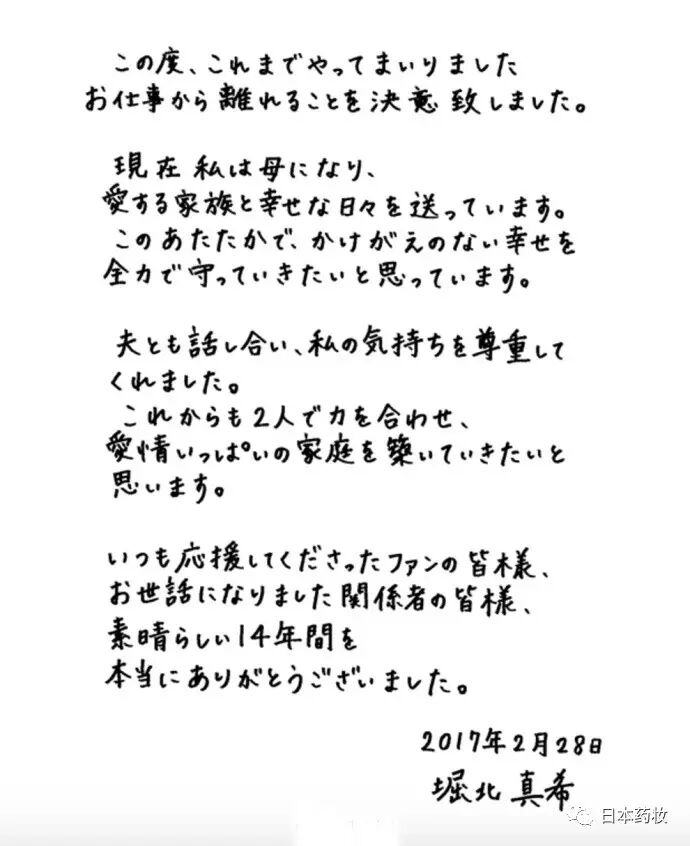 この度、これまでやってまいりました
お仕事から離れることを決意致しました。
現在私は母になり、
愛する家族と幸せな日々を送っています。
このあたたかで、かけがえのない幸せを
全力で守っていきたいと思っています。
夫とも話し合い、私の気持ちを尊重して
くれました。
これからも2人で力を合わせ、
愛情いっぱいの家庭を築いていきたいと
思います。
いつも応援してくださったファンの皆様、
お世話になりました関係者の皆様、
素晴らしい14年間を
本当にありがとうございました。
2017年2月28日
堀北真希
日本药妆